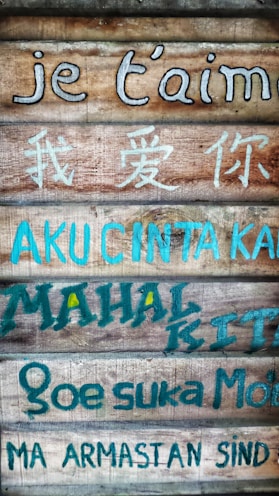 je t'aim
我爱你
AKU CINTA KA
MAHAL
KITA
goe suka Mo
MA ARMASTAN SIND